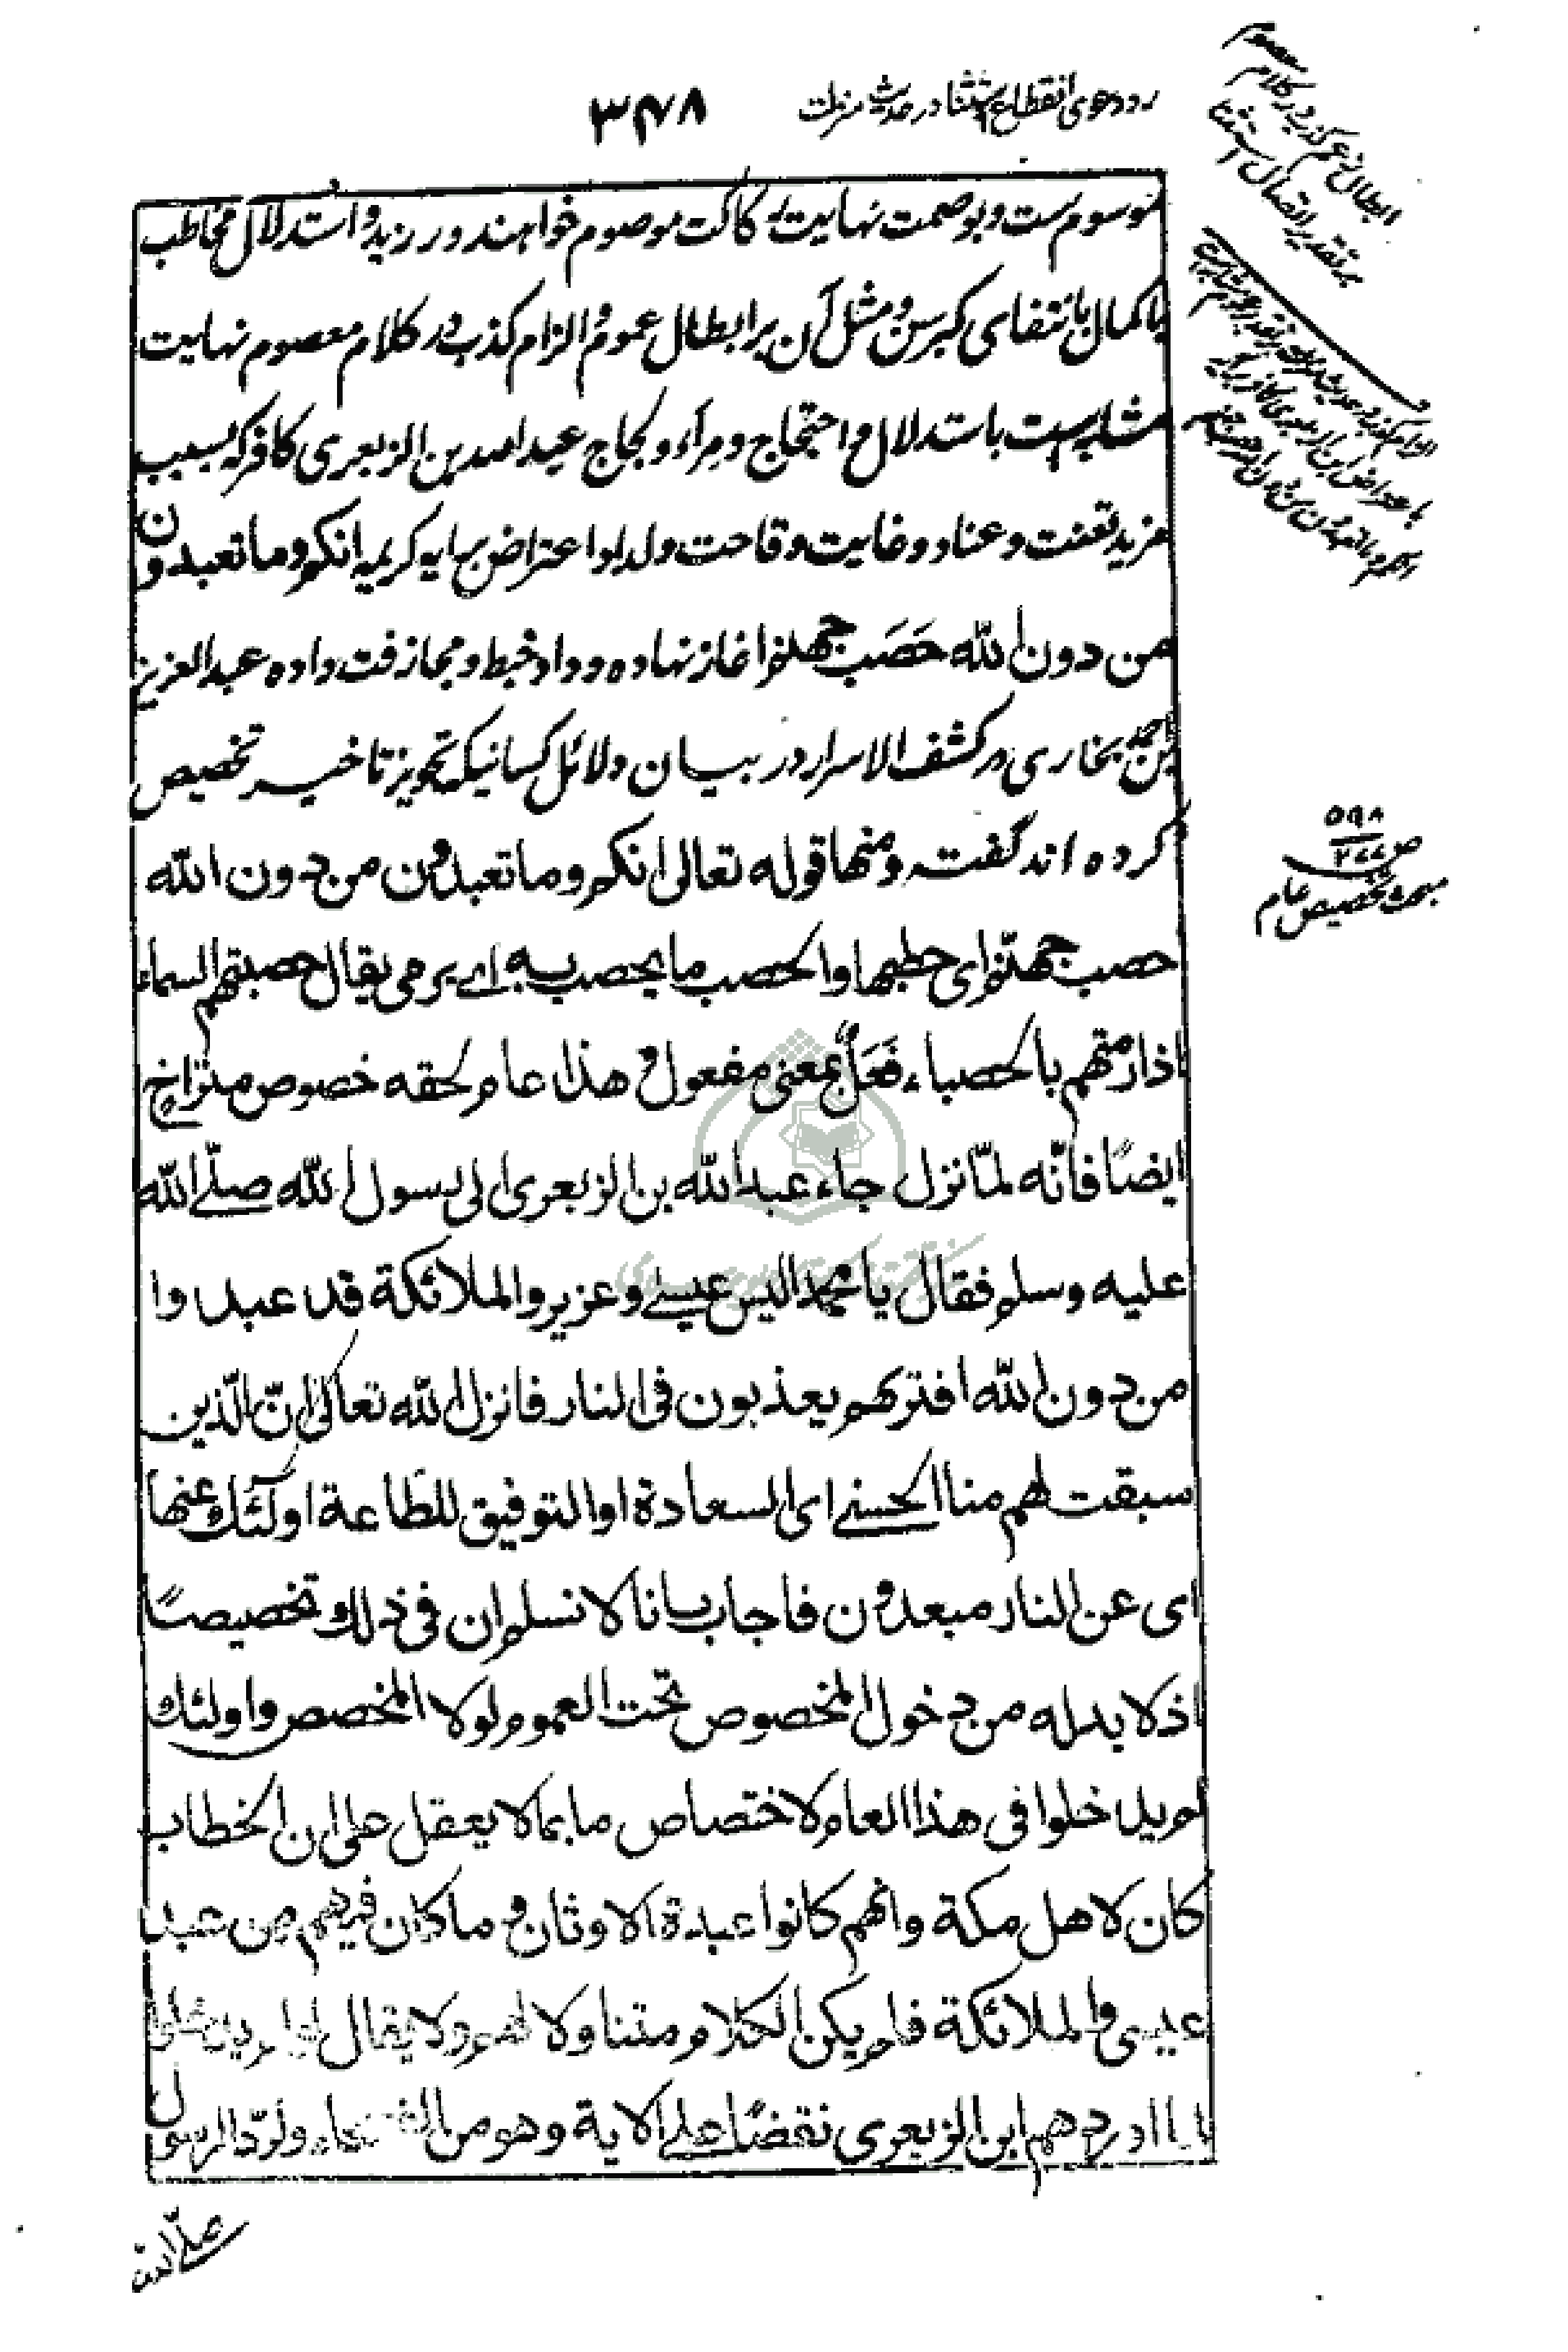 رد دعوی انقطاع استثنا در حدیث منزلت ٣٤٨
ابطال زعم کذب در کلام معصوم
بر تقدیر اتصال استثنا
موسوم ست و بوصمت نهایت رکاکت موصوم خواهند ورزید و استدلال مخاطب
باکمال بانتفای کبر سن و مثل آن بر ابطال عموم و الزام کذب در کلام معصوم نهایت
مشابه ست باستدلال و احتجاج و مراء و لجاج عبدالله بن الزبعری کافر که بسبب
مزید تعنت و عناد و غایت وقاحت ولداد اعتراض بر آیه کریمه انکم و ما تعبدون
من دون الله حَصَب جهنم آغاز نهاده و داد خبط و مجازفت داده عبدالعزیز
بن احمد بخاری در کشف الاسرار در بیان دلائل کسانیکه تجویز تاخیر تخصیص
کرده اند گفته و منها قوله تعالی انکم و ما تعبدون من دون الله
حصب جهنم ای حطبها و الحصب ما یحصب به ای یرمی یقال حصبتهم السماء
اذا رمتهم بالحصباء فَعَل بمعنی مفعول و هذا عام لحقه خصوص متراخٍ
ایضًا فانّه لمّا نزل جاء عبد الله بن الزبعری الی رسول الله صلّے الله
علیه و سلم فقال یا محمد الیس عیسے و عزیر و الملائکة قد عبدوا
من دون الله افترهم یعذبون فی النار فانزل الله تعالی انّ الّذین
سبقت لهم منا الحسنے ای السعادة او التوفیق للطّاعة اولٓئک عنها
ای عن النار مبعدون فاجاب بانا لا نسلم ان فی ذلک تخصیصًا
اذ لا بد له من دخول المخصوص تحت العموم لولا المخصص و اولئک
لم یدخلوا فی هذا العام لاختصاص ما بما لا یعقل علی ان الخطاب
کان لاهل مکة و انهم کانوا عبدة الاوثان و ما کان فیهم من عبد
عیسی و الملائکة فلم یکن الکلام متناولا لهم و لا یقال لو لم یدخلوا
لما اوردهم ابن الزبعری نقضًا علی الآیة و هو من الفصحاء و لردّ الرسول
٥٩٨
ص ٢٧٧
مبحث تخصیص عام